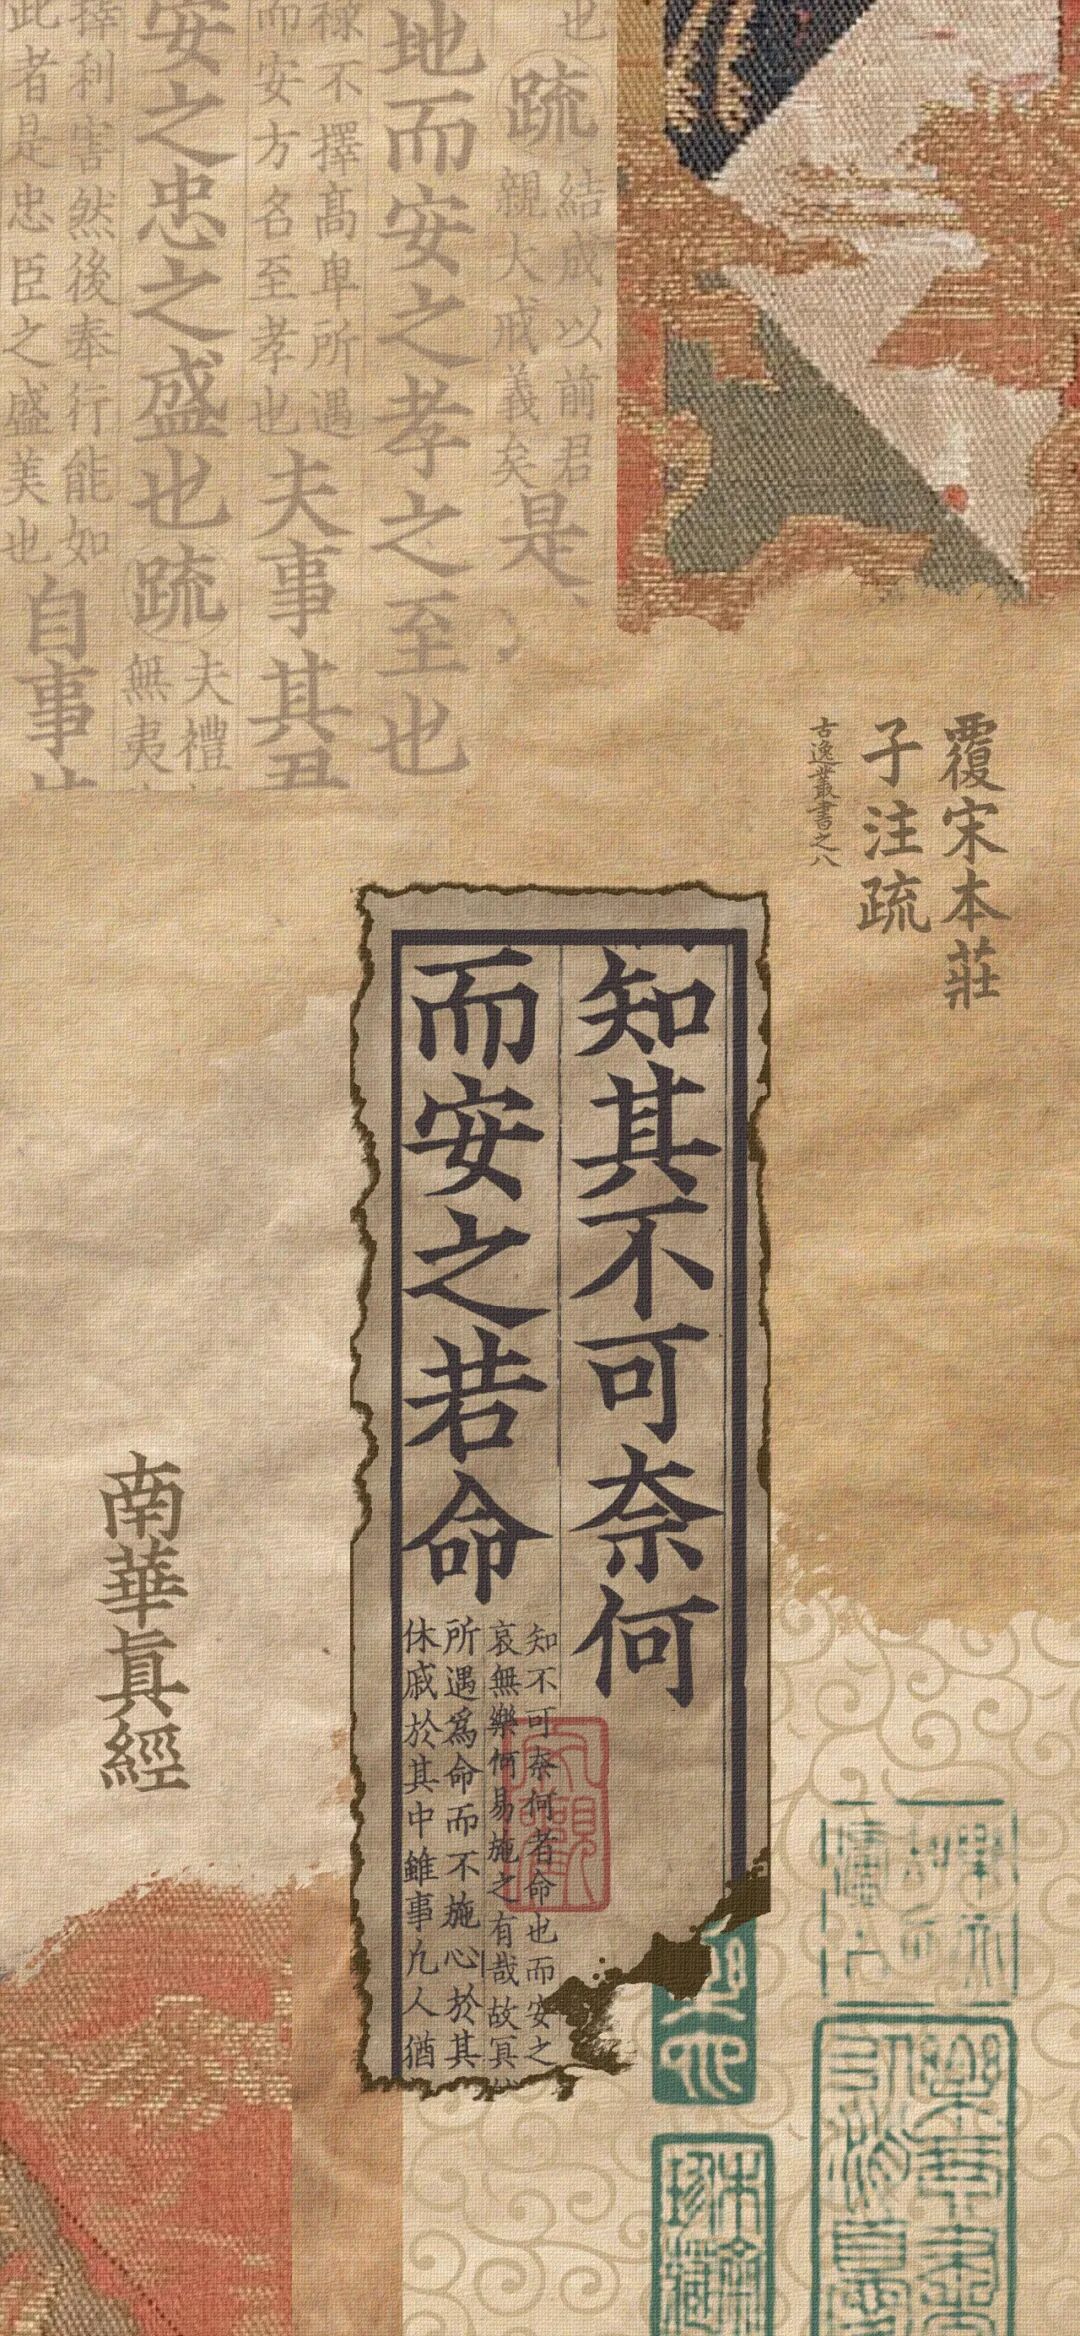 疏
結成以前君
親大戒義矣
是
地而安之孝之至也
祿不擇髙卑所遇
而安方名至孝也
夫事其君
安之忠之盛也
疏
夫禮
無夷
擇利害然後奉行能如
此者是忠臣之盛美也
自事
覆宋本莊
子注疏
古逸叢書之八
知其不可奈何
而安之若命
知不可奈何者命也而安之
哀無樂何易施之有哉故冥
所遇爲命而不施心於其
休戚於其中雖事凡人猶
南華眞經